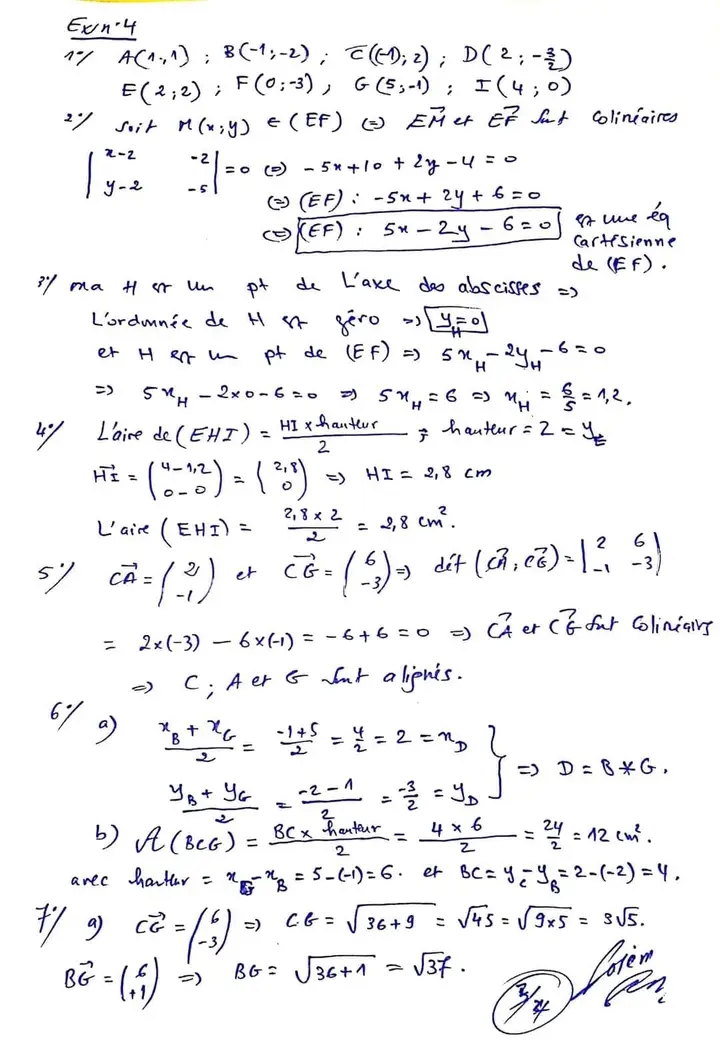 Ex n°4
1°/ A(1,1) ; B(-1;-2) ; C((-1);2) ; D(2;-3/2)
E(2;2) ; F(0;-3) ; G(5;-1) ; I(4;0)
2°/ Soit M(x;y) ∈ (EF) ⇔ EM⃗ et EF⃗ sont colinéaires
|x-2 -2; y-2 -5| = 0 ⇔ -5x+10+2y-4=0
⇔ (EF) : -5x+2y+6=0
⇔ (EF) : 5x-2y-6=0 est une éq cartésienne de (EF).
3°/ on a H est un pt de L'axe des abscisses ⇒
L'ordonnée de H est zéro ⇒ y_H=0
et H est un pt de (EF) ⇒ 5x_H-2y_H-6=0
⇒ 5x_H-2×0-6=0 ⇒ 5x_H=6 ⇒ x_H = 6/5 = 1,2.
4°/ L'aire de (EHI) = HI × hauteur / 2 ; hauteur = 2 = y_E
HI⃗ = (4-1,2; 0-0) = (2,8; 0) ⇒ HI = 2,8 cm
L'aire (EHI) = 2,8×2 / 2 = 2,8 cm².
5°/ CA⃗ = (2; -1) et CG⃗ = (6; -3) ⇒ dét (CA⃗; CG⃗) = |2 6; -1 -3|
= 2×(-3) - 6×(-1) = -6+6=0 ⇒ CA⃗ et CG⃗ sont colinéaires
⇒ C ; A et G sont alignés.
6°/ a) x_B+x_G / 2 = -1+5 / 2 = 4/2 = 2 = x_D
y_B+y_G / 2 = -2-1 / 2 = -3/2 = y_D } ⇒ D = B*G.
b) A(BCG) = BC × hauteur / 2 = 4×6 / 2 = 24/2 = 12 cm².
avec hauteur = x_G-x_B = 5-(-1)=6. et BC = y_C-y_B = 2-(-2) = 4.
7°/ a) CG⃗ = (6; -3) ⇒ CG = √36+9 = √45 = √9×5 = 3√5.
BG⃗ = (6; +1) ⇒ BG = √36+1 = √37.